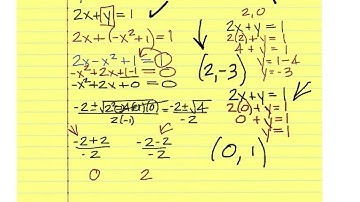 2x+y=1
2x+(-x²+1)=1
2x-x²+1=1
-x²+2x+1-1=0
-x²+2x+0=0
-2±√2²-4(-1)(0) = -2±√4
2(-1) -2
-2+2 -2-2
-2 -2
0 2
2,0
2x+y=1
2(2)+y=1
4+y=1
y=1-4
y=-3
(2,-3)
2x+y=1
2(0)+y=1
0+y=1
y=1
(0,1)